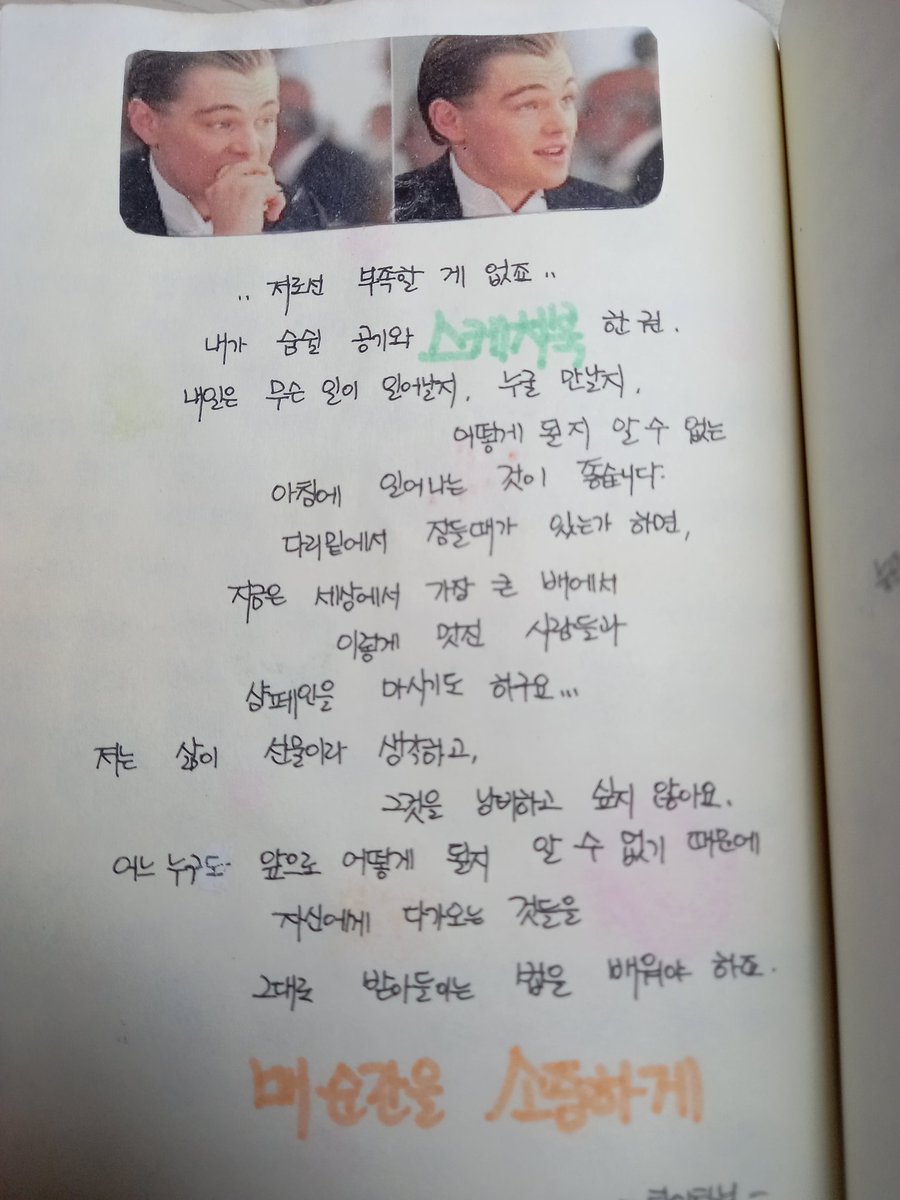 .. 저로선 부족할 게 없죠 ..
내가 숨쉴 공기와 스케치북 한 권.
내일은 무슨 일이 일어날지, 누굴 만날지,
어떻게 될지 알 수 없는
아침에 일어나는 것이 좋습니다.
다리밑에서 잠들때가 있는가 하면,
지금은 세상에서 가장 큰 배에서
이렇게 멋진 사람들과
샴페인을 마시기도 하구요...
저는 삶이 선물이라 생각하고,
그것을 낭비하고 싶지 않아요.
어느 누구도 앞으로 어떻게 될지 알 수 없기 때문에
자신에게 다가오는 것들을
그대로 받아들이는 법을 배워야 하죠.
매 순간을 소중하게